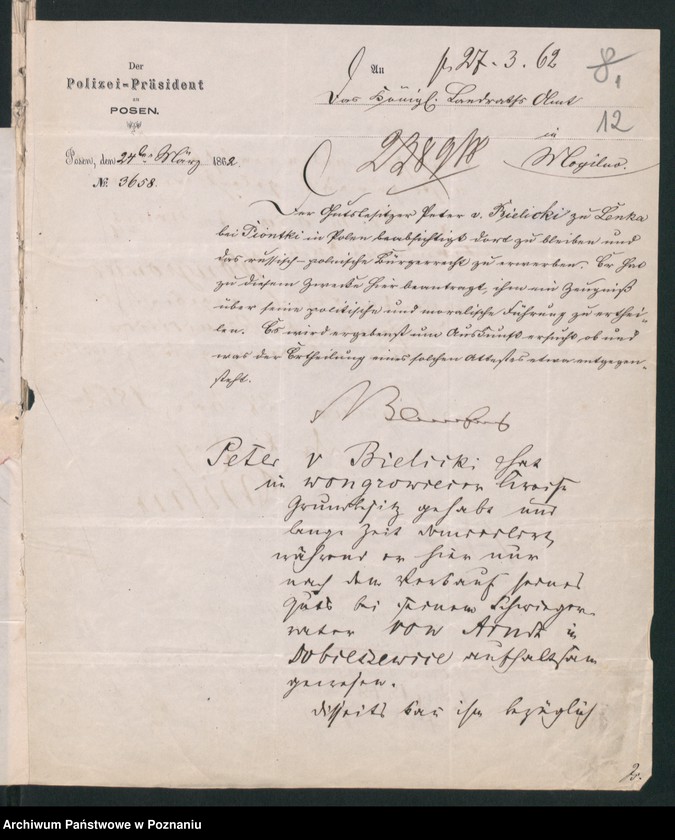 Der
Polizei-Präsident
zu
POSEN.
Posen, den 24ten März 1862.
No. 3658.
pr. 27. 3. 62
8
12
An
Das Königl. Landraths Amt
in
Mogilno.
Der Gutsbesitzer Peter v. Bielicki zu Lenka
bei Piontki in Polen beabsichtigt dort zu bleiben und
das russisch-polnische Bürgerrecht zu erwerben. Er hat
zu diesem Zwecke hier beantragt, ihm ein Zeugniß
über seine politische und moralische Führung zu erthei-
len. Es wird ergebenst um Auskunft ersucht, ob und
was der Ertheilung eines solchen Attestes etwa entgegen-
steht.
Peter v Bielicki hat
im wongrowiecer Kreise
Grundbesitz gehabt und
lange Zeit domicilirt,
während er hier nur
nach dem Verkauf seines
Guts bei seinem Schwieger-
vater von Arndt in
Dobieszewice aufhaltsam
gewesen.
Disseits kan ihm bezüglich
Archiwum Państwowe w Poznaniu